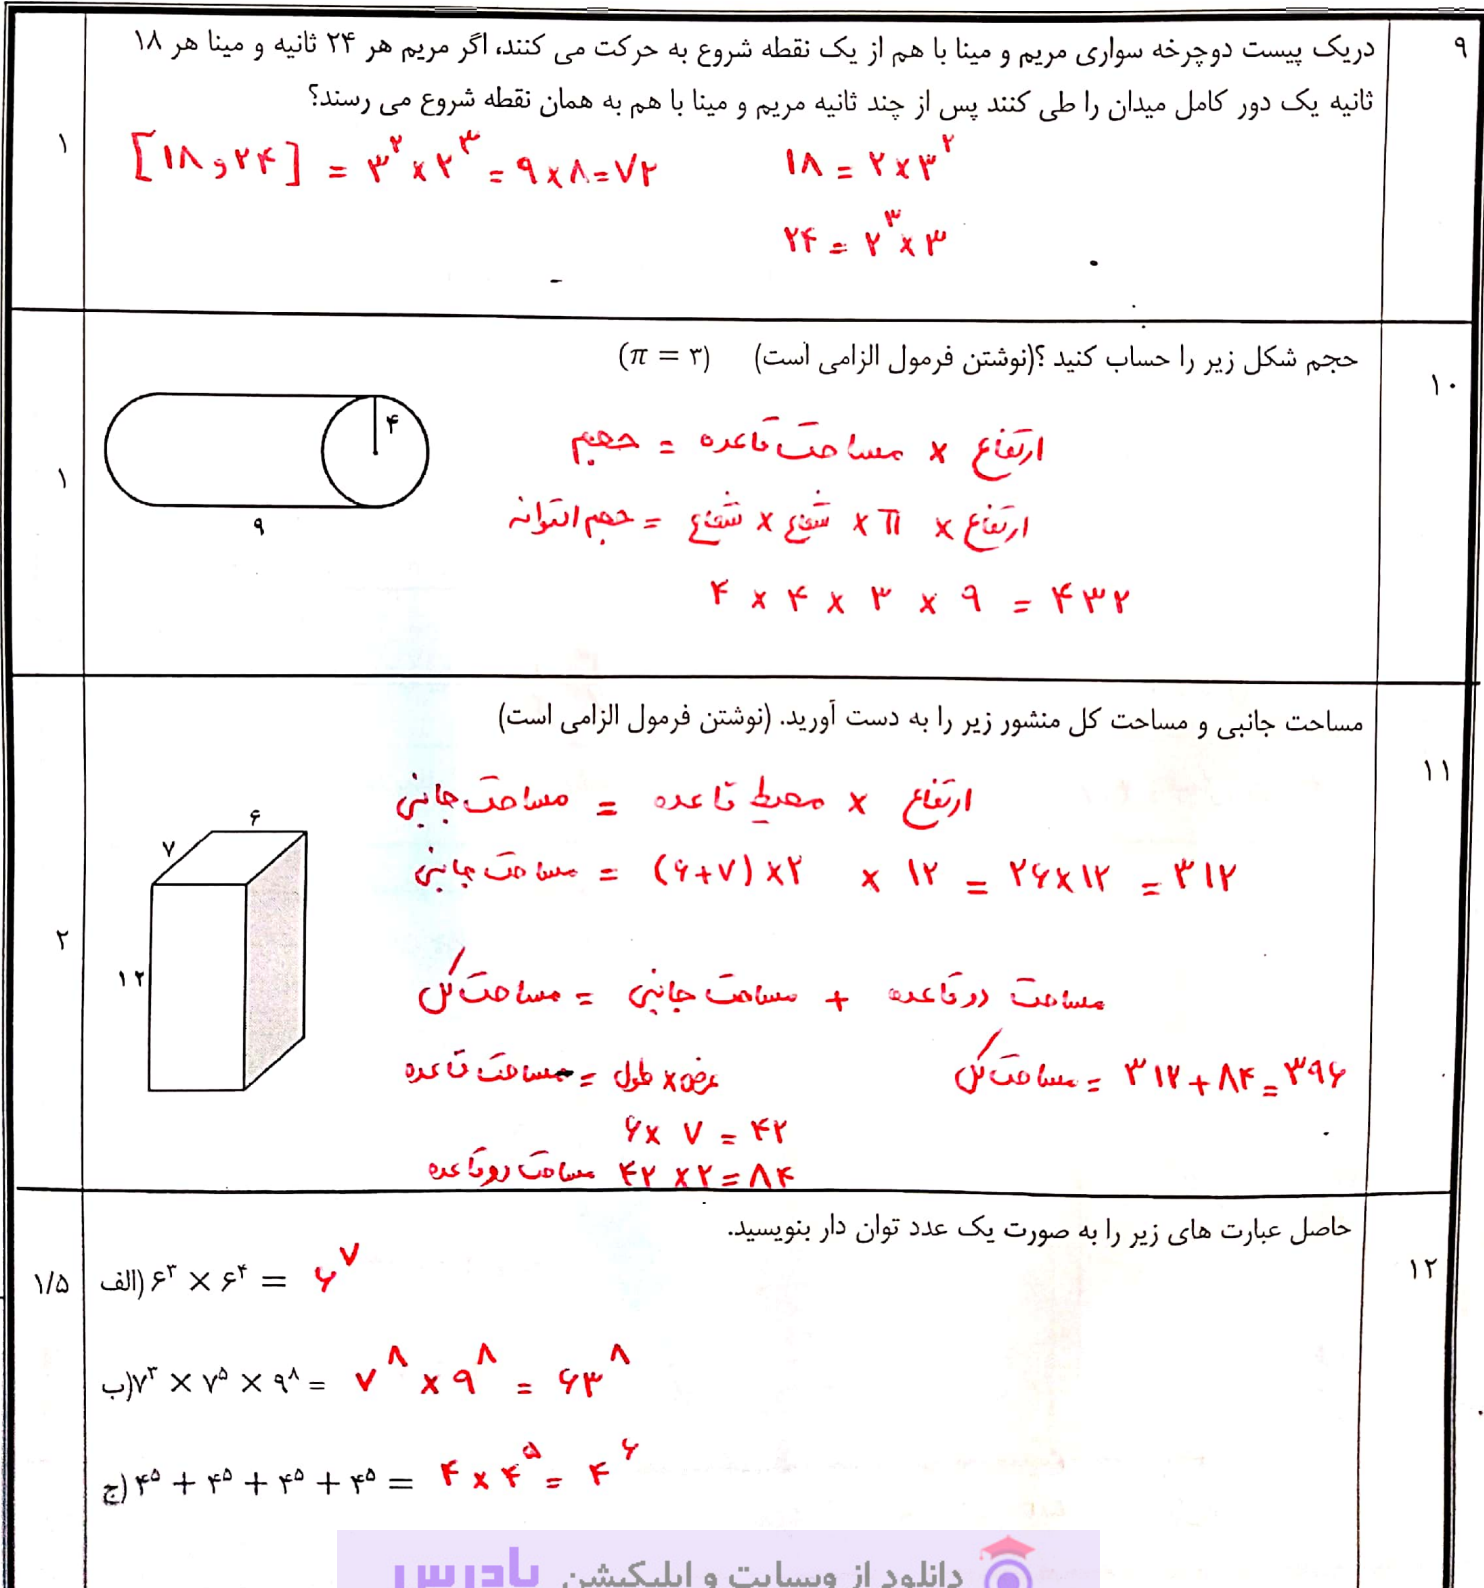 ۹
دریک پیست دوچرخه سواری مریم و مینا با هم از یک نقطه شروع به حرکت می کنند، اگر مریم هر ۲۴ ثانیه و مینا هر ۱۸
ثانیه یک دور کامل میدان را طی کنند پس از چند ثانیه مریم و مینا با هم به همان نقطه شروع می رسند؟
۱
[۱۸ و ۲۴] = ۳^۲ × ۲^۳ = ۹ × ۸ = ۷۲
۱۸ = ۲ × ۳^۲
۲۴ = ۲^۳ × ۳
۱۰
حجم شکل زیر را حساب کنید ؟(نوشتن فرمول الزامی است) (π = ۳)
۱
۴
۹
ارتفاع × مساحت قاعده = حجم
ارتفاع × π × شعاع × شعاع = حجم استوانه
۴ × ۴ × ۳ × ۹ = ۴۳۲
۱۱
مساحت جانبی و مساحت کل منشور زیر را به دست آورید. (نوشتن فرمول الزامی است)
۲
۶
۷
۱۲
ارتفاع × محیط قاعده = مساحت جانبی
مساحت جانبی = (۶+۷)×۲ × ۱۲ = ۲۶×۱۲ = ۳۱۲
مساحت دو قاعده + مساحت جانبی = مساحت کل
عرض × طول = مساحت قاعده
مساحت کل = ۳۱۲ + ۸۴ = ۳۹۶
۶ × ۷ = ۴۲
مساحت دو قاعده ۴۲ × ۲ = ۸۴
۱۲
حاصل عبارت های زیر را به صورت یک عدد توان دار بنویسید.
۱/۵
الف) ۶^۳ × ۶^۴ = ۶^۷
ب) ۷^۳ × ۷^۵ × ۹^۸ = ۷^۸ × ۹^۸ = ۶۳^۸
ج) ۴^۵ + ۴^۵ + ۴^۵ + ۴^۵ = ۴ × ۴^۵ = ۴^۶
دانلود از وبسایت و اپلیکیشن پادرس